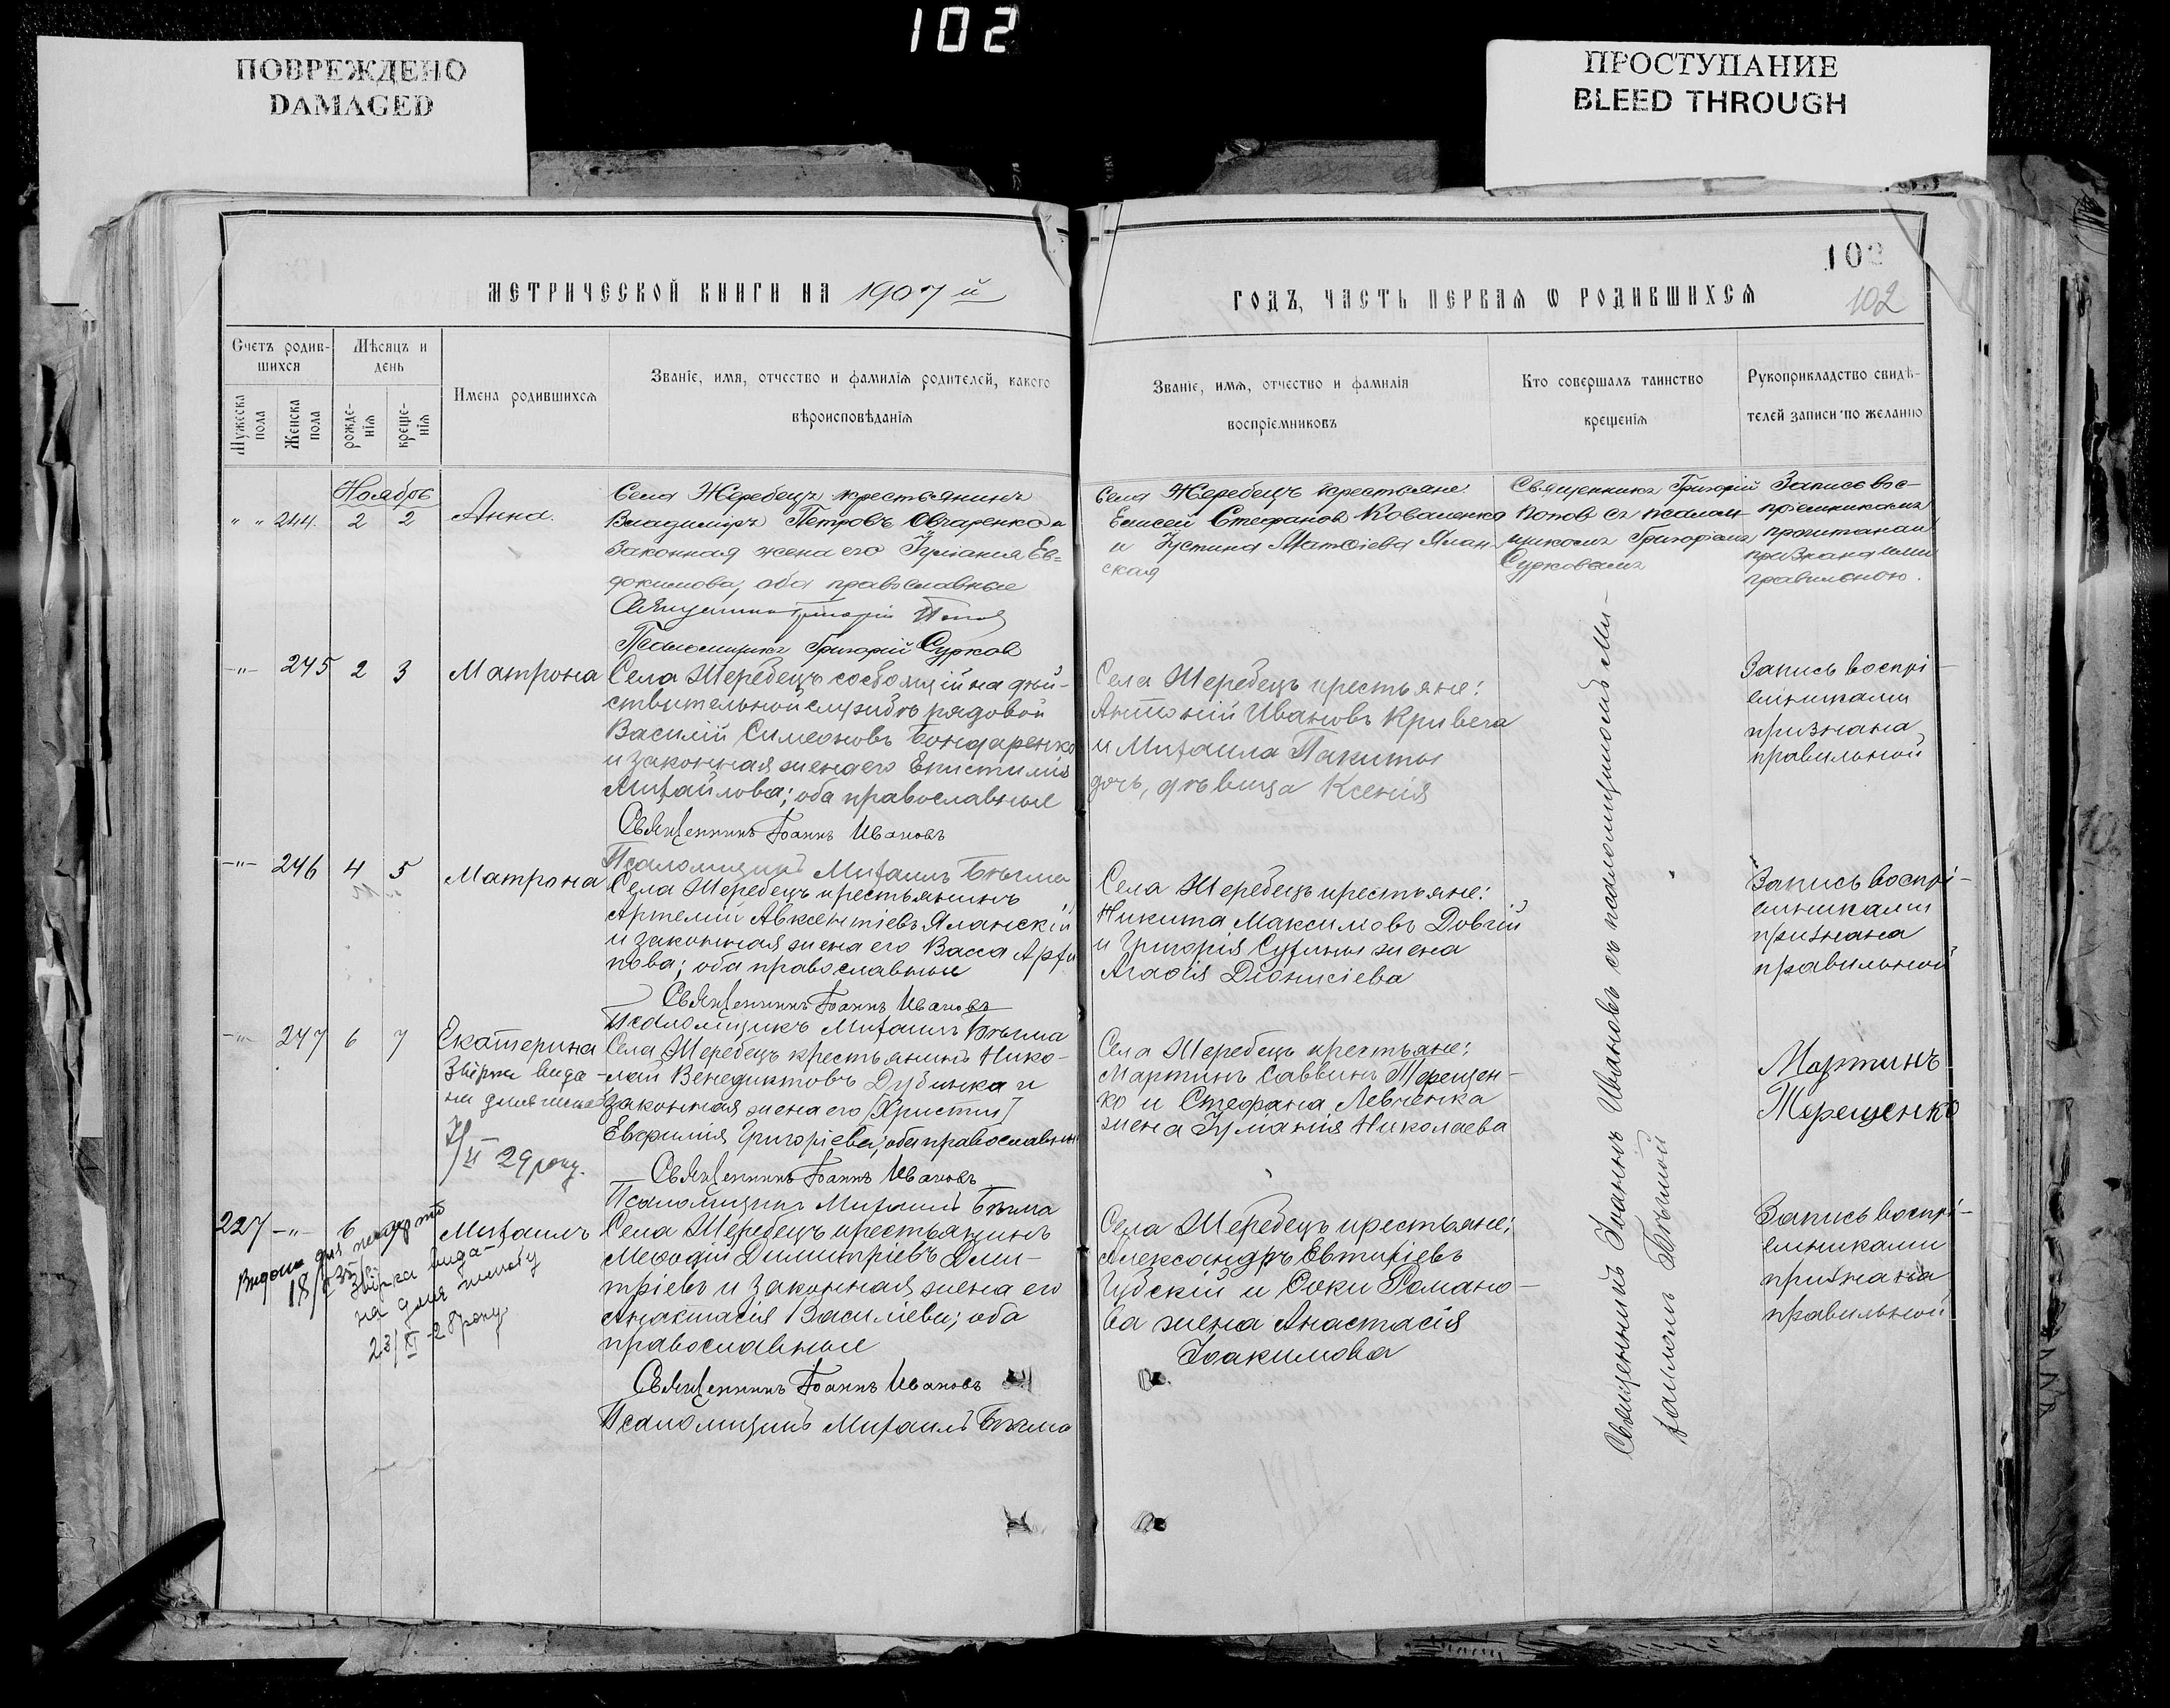 102
ПОВРЕЖДЕНО
DAMAGED
ПРОСТУПАНИЕ
BLEED THROUGH
МЕТРИЧЕСКОЙ КНИГИ НА 1907 й
Счетъ родив-
шихся
Мѣсяцъ и
день
Мужеска
пола
Женска
пола
рожде-
нія
креще-
нія
Имена родившихся
Званіе, имя, отчество и фамилія родителей, какого
вѣроисповѣданія
Ноябрь
" " 244. 2 2 Анна.
Села Жеребецъ крестьянинъ
Владимиръ Петровъ Овчаренко и
законная жена его Іуліанія Ев=
докимова, оба православные
Священникъ Григорій Попов
Псаломщикъ Григорій Сурков
-"- 245 2 3 Матрона
Села Жеребецъ состоящій на дѣй-
ствительной службѣ рядовой
Василій Симеоновъ Бондаренко
и законная жена его Епистимія
Михайлова; оба православные
Священникъ Іоаннъ Ивановъ
Псаломщикъ Михаилъ
-"- 246 4 5 Матрона
Села Жеребецъ крестьянинъ
Артемій Авксентіевъ Яланскій
и законная жена его Васса
пова; оба православные
Священникъ Іоаннъ Ивановъ
Псаломщикъ Михаилъ
-"- 247 6 7 Екатерина
Села Жеребецъ крестьянинъ Нико-
лай Венедиктовъ Дубинка и
законная жена его [Христин]
Евфимія Григоріева; оба православные
Священникъ Іоаннъ Ивановъ
Псаломщикъ Михаилъ
29 року.
227 -"- 6 Михаилъ
Села Жеребецъ крестьянинъ
Меѳодій Димитріевъ Дми-
тріевъ и законная жена его
Анастасія Василіева; оба
православные
Священникъ Іоаннъ Ивановъ
Псаломщикъ Михаилъ
Видана для
на для шлюбу
23/XI-28 року
102
102
ГОДЪ, ЧАСТЬ ПЕРВАЯ Ѡ РОДИВШИХСЯ
Званіе, имя, отчество и фамилія
воспріемниковъ
Кто совершалъ таинство
крещенія
Рукоприкладство свидѣ-
телей записи по желанію
Села Жеребецъ крестьяне:
Елисей Стефановъ Коваленко
и Іустина Матѳіева Ялан-
ская
Священникъ Григорій
Попов съ псалом-
щикомъ Григоріемъ
Сурковымъ
Запись вос-
пріемникамъ
прочитана и
признана ими
правильною.
Села Жеребецъ крестьяне:
Антоній Ивановъ Кривега
и Михаила Пакиты
дочь, дѣвица Ксенія
Запись воспрі-
емниками
признана
правильной
Села Жеребецъ крестьяне:
Никита Максимовъ Довгій
и Григорія жена
Агаѳія Діонисіева
Запись воспрі-
емниками
признана
правильной
Села Жеребецъ крестьяне:
Мартинъ Саввинъ Терещен-
ко и Стефана Левченка
жена Іуліанія Николаева
Мартинъ
Терещенко
Села Жеребецъ крестьяне:
Александръ Евтихіевъ
Губскій и Саки Романо-
ва жена Анастасія
Іоакимова
Запись воспрі-
емниками
признана
правильной
Священникъ Іоаннъ Ивановъ съ псаломщикомъ Ми-
хаиломъ